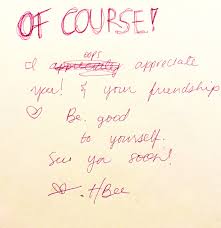 OF COURSE!
OOPS
I appreciate appreciate
you! & your friendship
♡ Be good
to yourself.
See you soon!
HBee